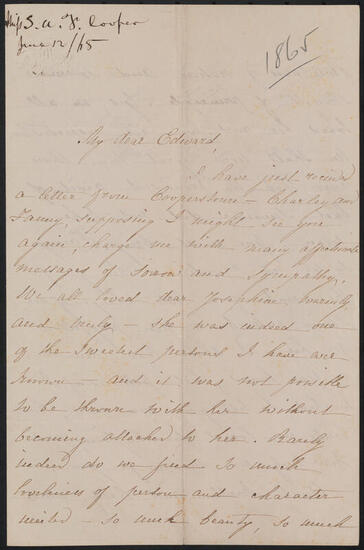 Miss S. A. F. Cooper
June 12/65
1865
My dear Edward,
I have just received
a letter from Cooperstown — Charley and
Fanny, supposing I might see you
again, charge me with many affectionate
messages of sorrow and sympathy.
We all loved dear Josephine
and truly — she was indeed one
of the sweetest persons I have ever
known — and it was not possible
to be thrown with her without
becoming attached to her. Rarely
indeed do we find so much
loveliness of person and character
united — so much beauty, so much